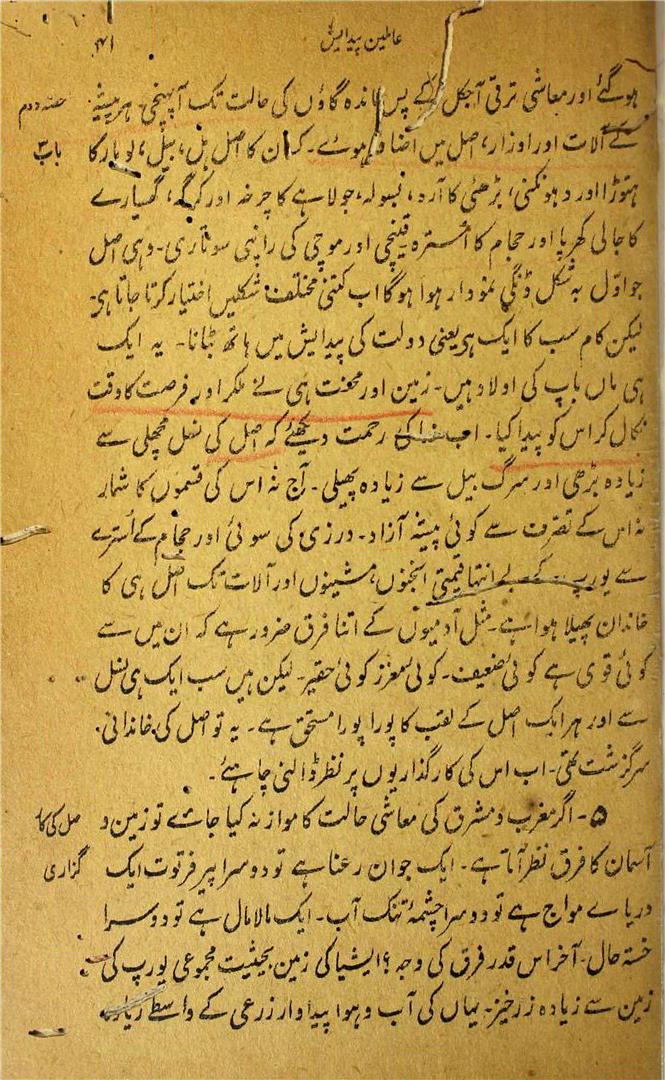 عاملین پیدایش
۴۱
ہوگئے اور معاشی ترقی آجکل کے پس ماندہ گاؤں کی حالت تک آپہنچی۔ ہر پیشہ
حصہ دوم
کے آلات اور اوزار، اصل میں اضافہ ہوے۔ کسان کا اصل ہل، بیل، لوہار کا
باب ۳
ہتوڑا اور دہونکنی، بڑھئی کا آرہ، بسولہ، جولاہے کا چرخہ اور کرگہ، گھسیارے
کا جالی کھرپا اور حجام کا اُسترہ قینچی اور موچی کی راپنی سوتاری۔ وہی اصل
جو اوّل بہ شکل ڈنگی نمودار ہوا ہوگا اب کتنی مختلف شکلیں اختیار کرتا جاتا ہی۔
لیکن کام سب کا ایک ہی یعنی دولت کی پیدایش میں ہاتھ بٹانا۔ یہ ایک
ہی ماں باپ کی اولاد ہیں۔ زمین اور محنت ہی نے ملکر اور فرصت کا وقت
نکال کر اس کو پیدا کیا۔ اب خدا کی رحمت دیکھئے کہ اصل کی نسل مچھلی سے
زیادہ بڑھی اور سرگ بیل سے زیادہ پھیلی۔ آج نہ اس کی قسموں کا شمار
نہ اس کے تصرف سے کوئی پیشہ آزاد۔ درزی کی سوئی اور حجام کے اُسترے
سے یورپ کے بے انتہا قیمتی انجنوں، مشینوں اور آلات تک اصل ہی کا
خاندان پھیلا ہوا ہے۔ مثل آدمیوں کے اتنا فرق ضرور ہے کہ ان میں سے
کوئی قوی ہے کوئی ضعیف۔ کوئی معزز کوئی حقیر۔ لیکن ہیں سب ایک ہی نسل
سے اور ہر ایک اصل کے لقب کا پورا پورا مستحق ہے۔ یہ تو اصل کی خاندانی
سرگزشت تھی۔ اب اس کی کارگذاریوں پر نظر ڈالنی چاہئے۔
۵۔ اگر مغرب و مشرق کی معاشی حالت کا موازنہ کیا جائے تو زمین و
اصل کی کار
آسمان کا فرق نظر آتا ہے۔ ایک جوان رعنا ہے تو دوسرا پیر فرتوت ایک
گزاری
دریاے مواج ہے تو دوسرا چشمۂ تنک آب۔ ایک مالامال ہے تو دوسرا
خستہ حال۔ آخر اس قدر فرق کی وجہ؟ ایشیا کی زمین بحیثیت مجموعی یورپ کی
زمین سے زیادہ زرخیز۔ یہاں کی آب و ہوا پیداوار زرعی کے واسطے زیادہ